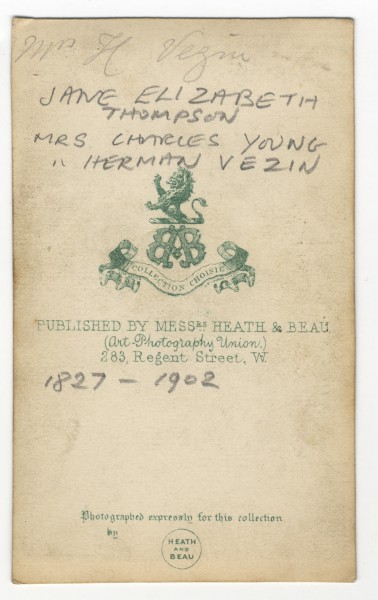 Mrs H Vezin
JANE ELIZABETH
THOMPSON
MRS CHARLES YOUNG
" HERMAN VEZIN
COLLECTION CHOISIE
PUBLISHED BY MESSRS HEATH & BEAU
(Art-Photography Union.)
283, Regent Street, W.
1827 - 1902
Photographed expressly for this collection
by
HEATH
AND
BEAU